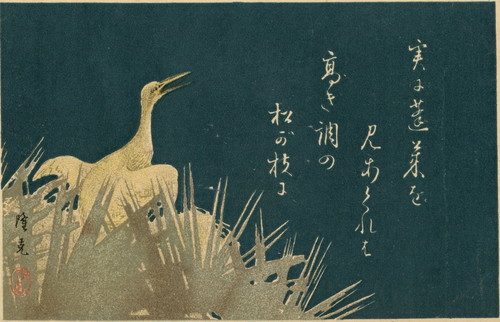 実に蓬莱を
見あくれは
高き調の
松が枝に
隆堯